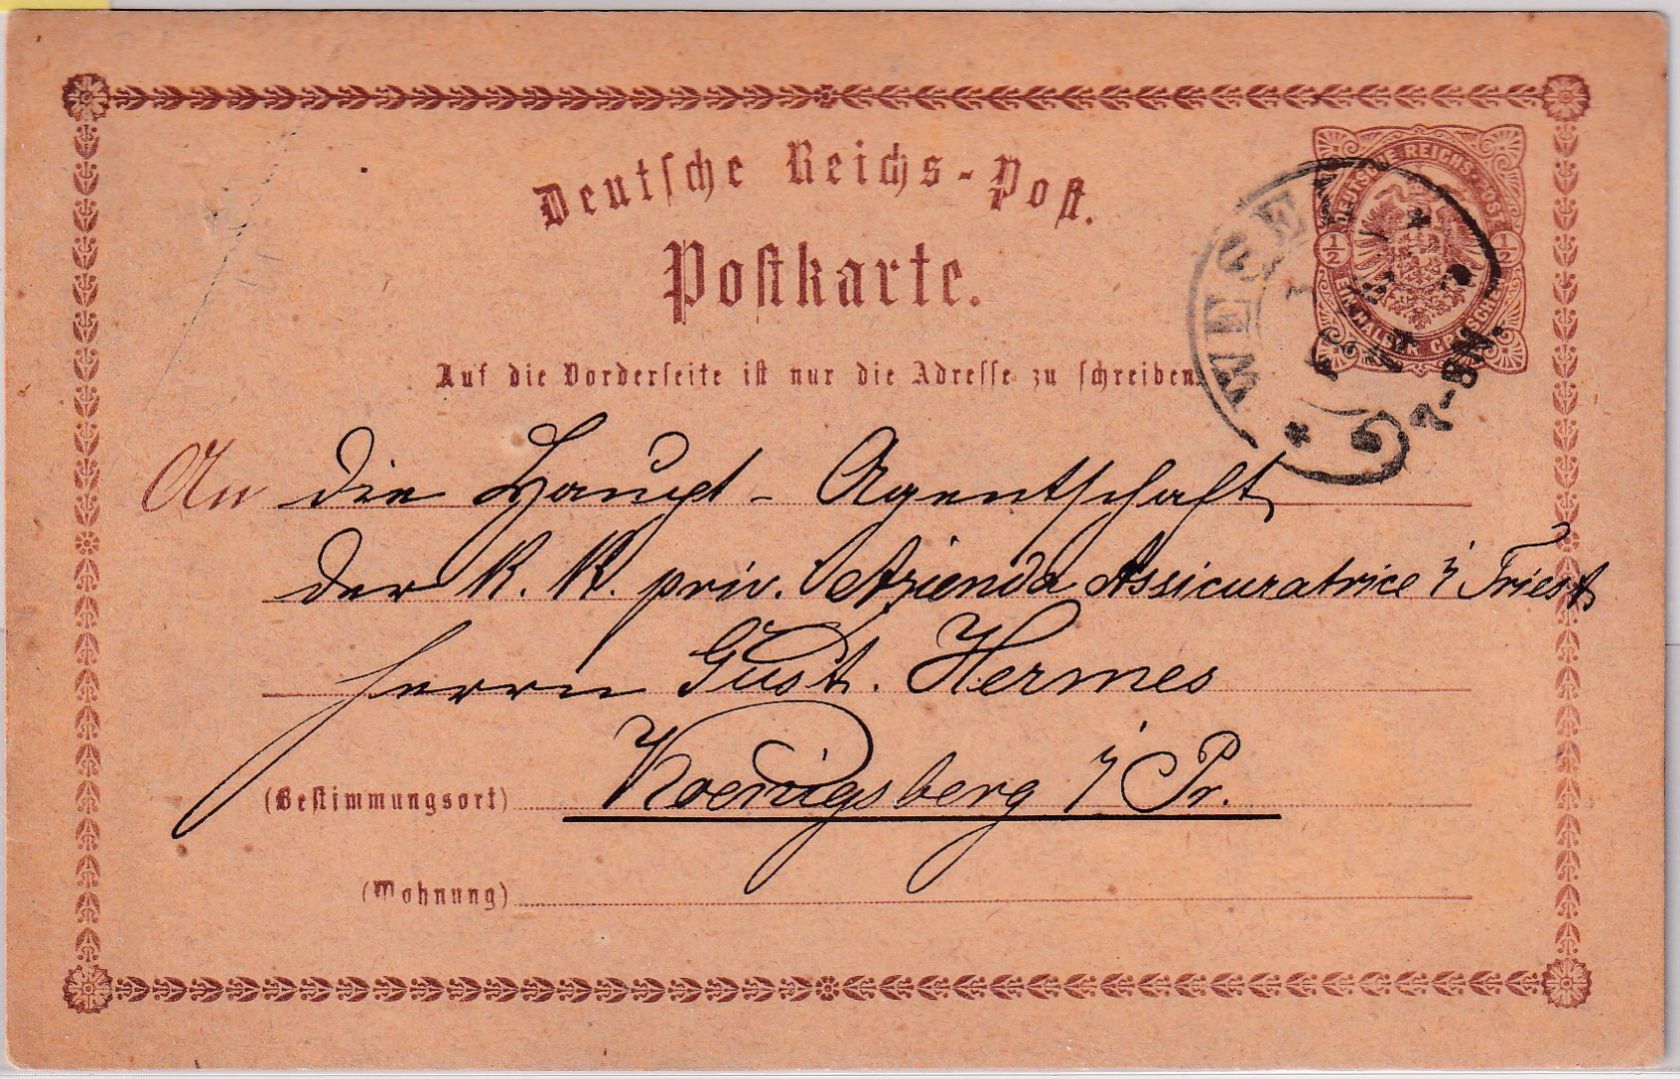 Deutsche Reichs-Post.
Postkarte.
DEUTSCHE REICHS-POST
1/2 1/2
EIN HALBER GROSCHEN
WESE
7-8N.
Auf die Vorderseite ist nur die Adresse zu schreiben.
An die Haupt-Agentschaft
der K. K. priv. Azienda Assicuratrice i/ Triest
Herrn Gust. Hermes
(Bestimmungsort) Koenigsberg i/ Pr.
(Wohnung)